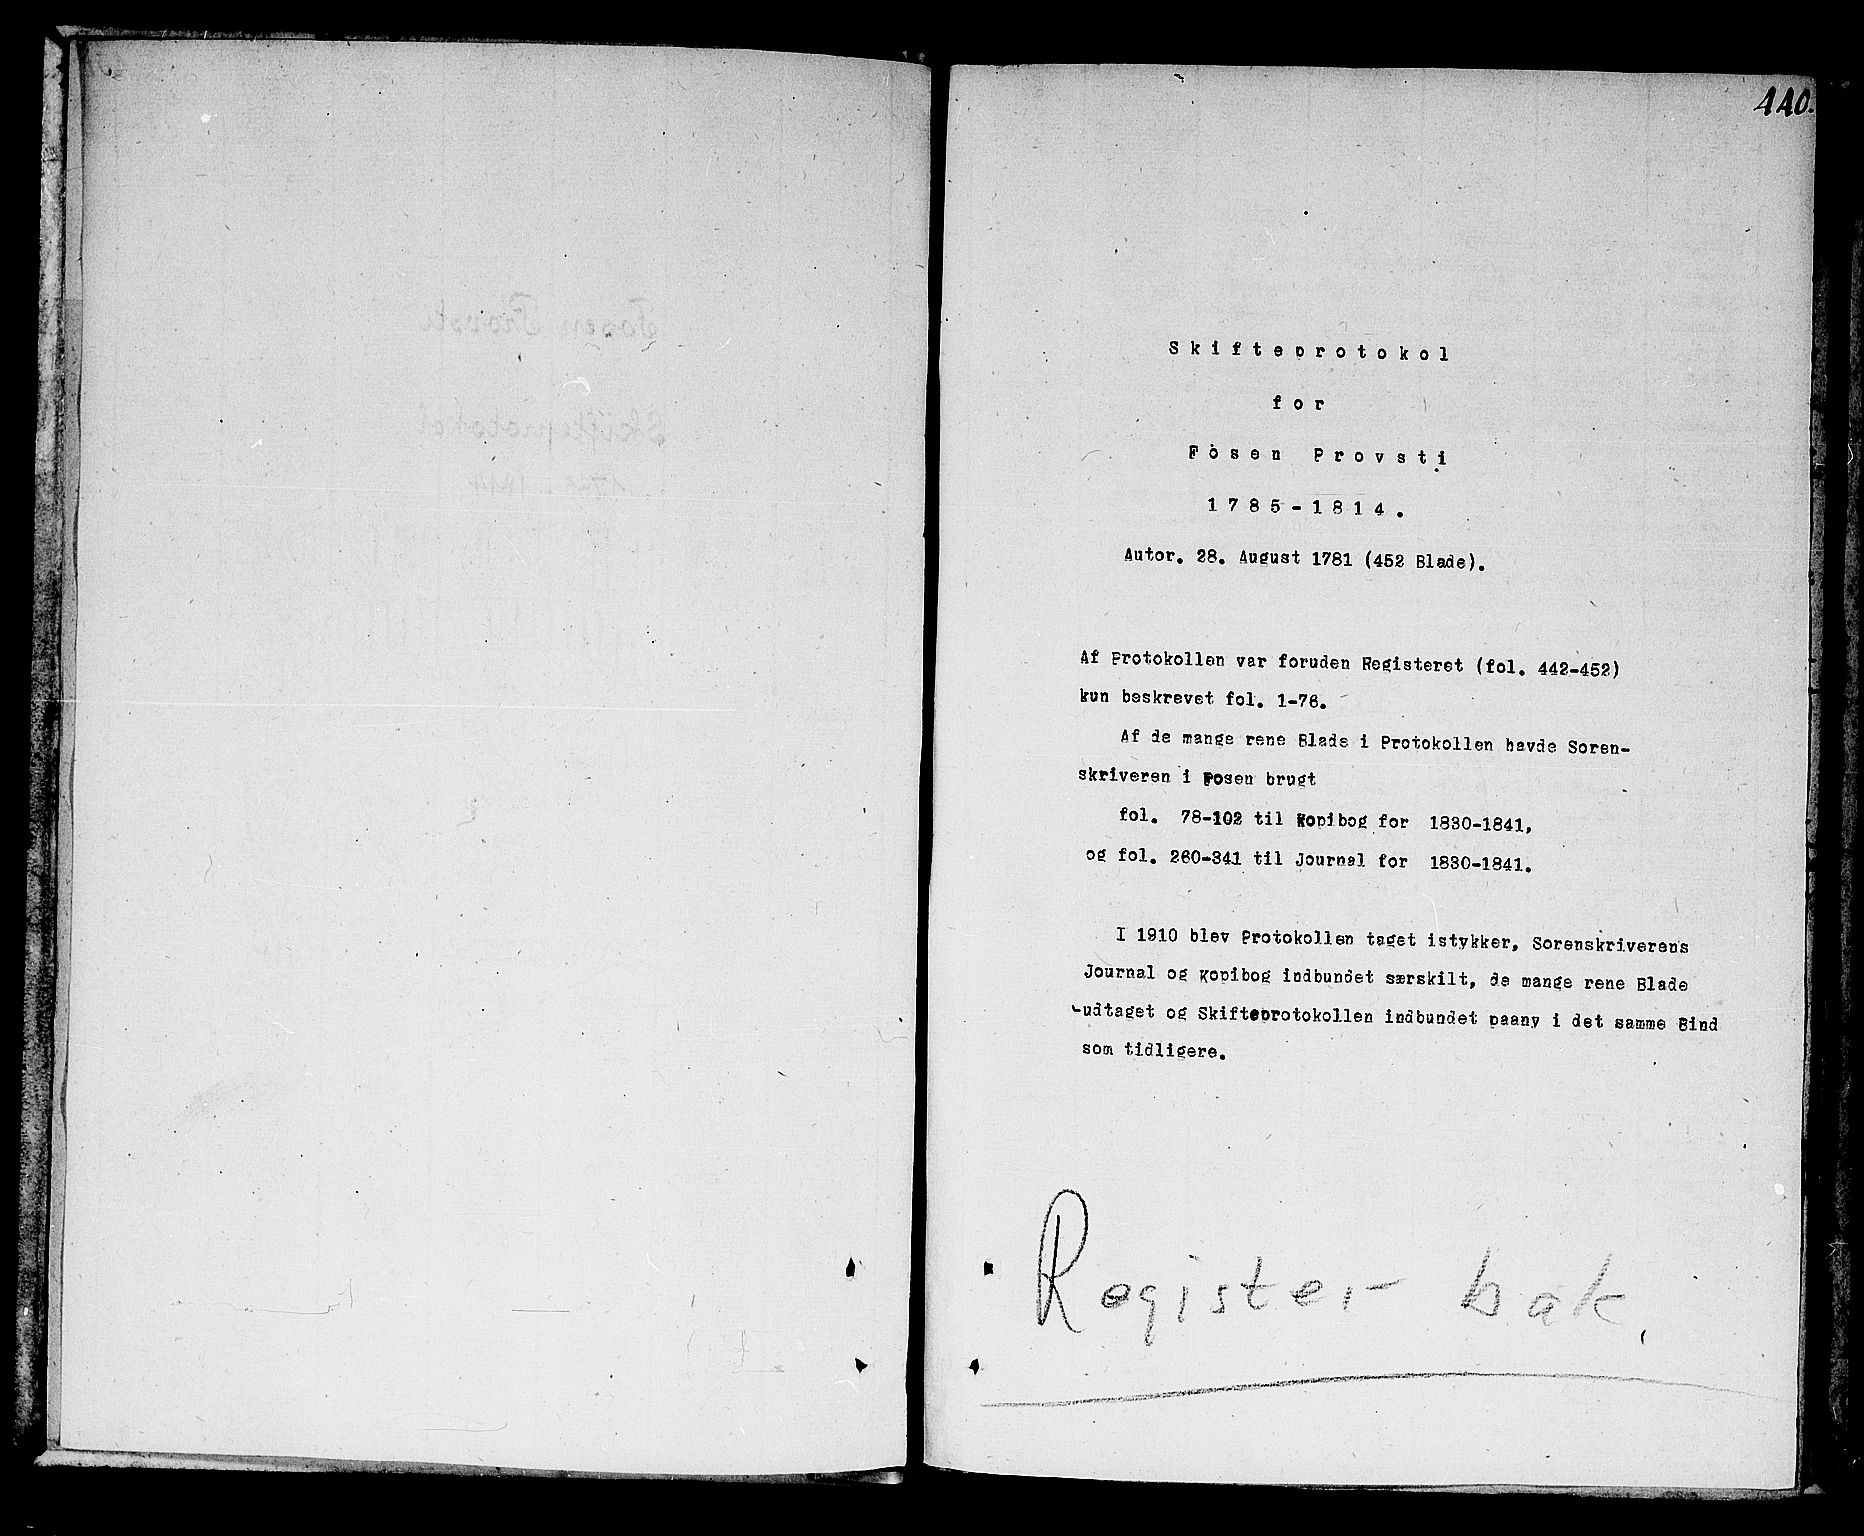 440.
Skifteprotokol
for
Fosen Provsti
1785-1814.
Autor. 28. August 1781 (452 Blade).
Af Protokollen var foruden Registeret (fol. 442-452)
kun beskrevet fol. 1-76.
Af de mange rene Blade i Protokollen havde Soren-
skriveren i Fosen brugt
fol. 78-102 til Kopibog for 1830-1841,
og fol. 260-341 til Journal for 1830-1841.
I 1910 blev Protokollen taget istykker, Sorenskriverens
Journal og Kopibog indbundet særskilt, de mange rene Blade
udtaget og Skifteprotokollen indbundet paany i det samme Bind
som tidligere.
Register bak.